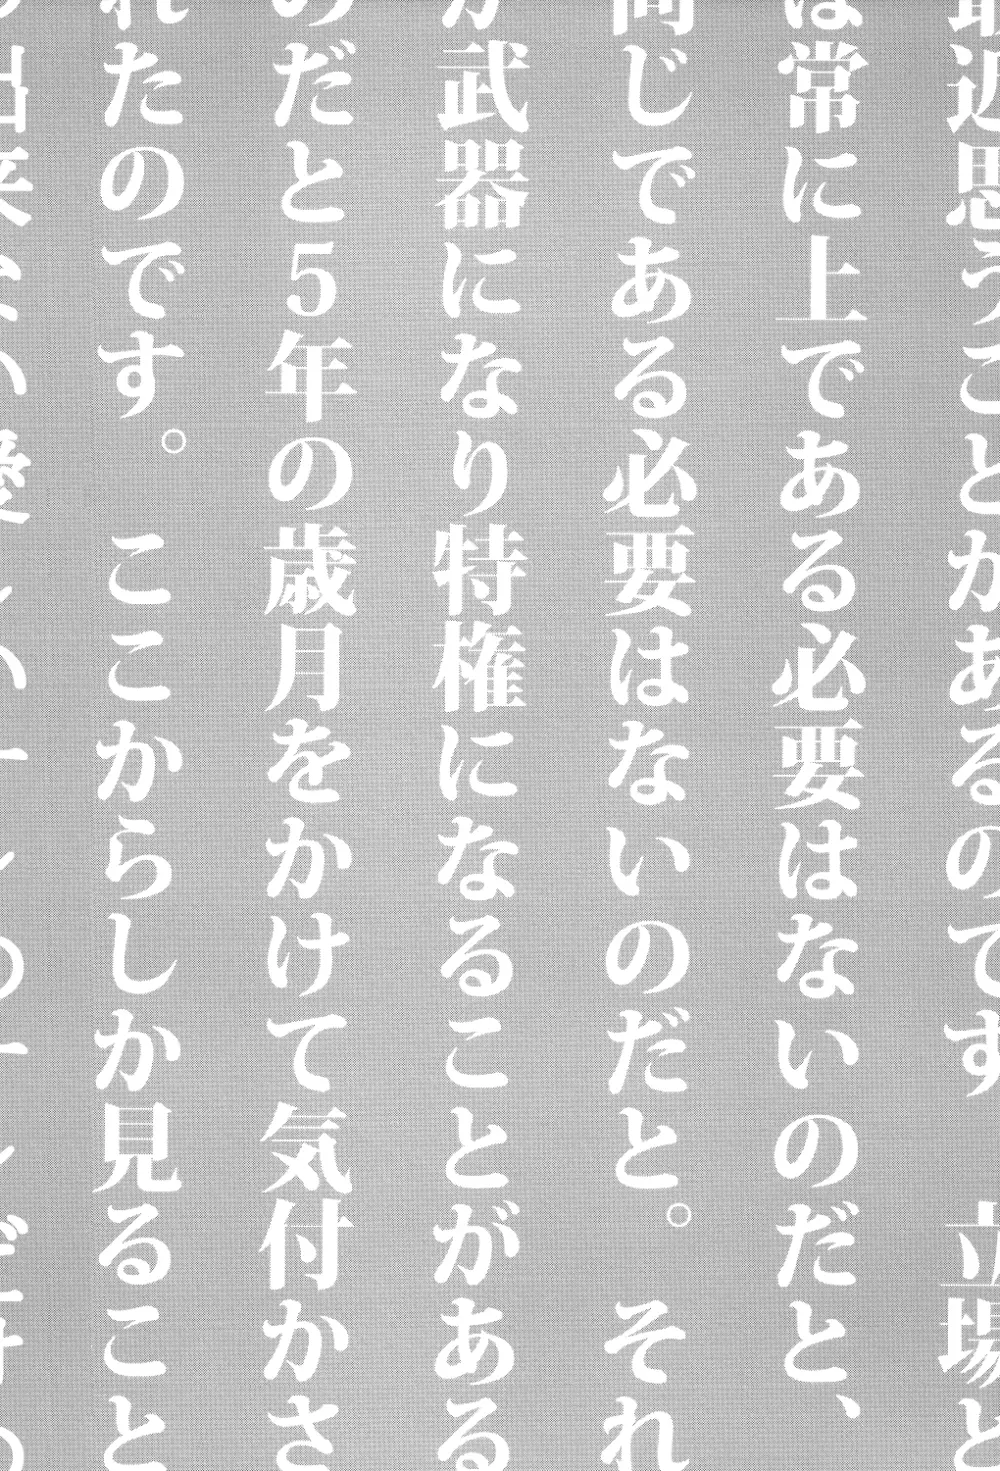 最近思うことがあるのです　立場と
は常に上である必要はないのだと、
同じである必要はないのだと。　それ
が武器になり特権になることがある
のだと５年の歳月をかけて気付かさ
れたのです。　ここからしか見ること